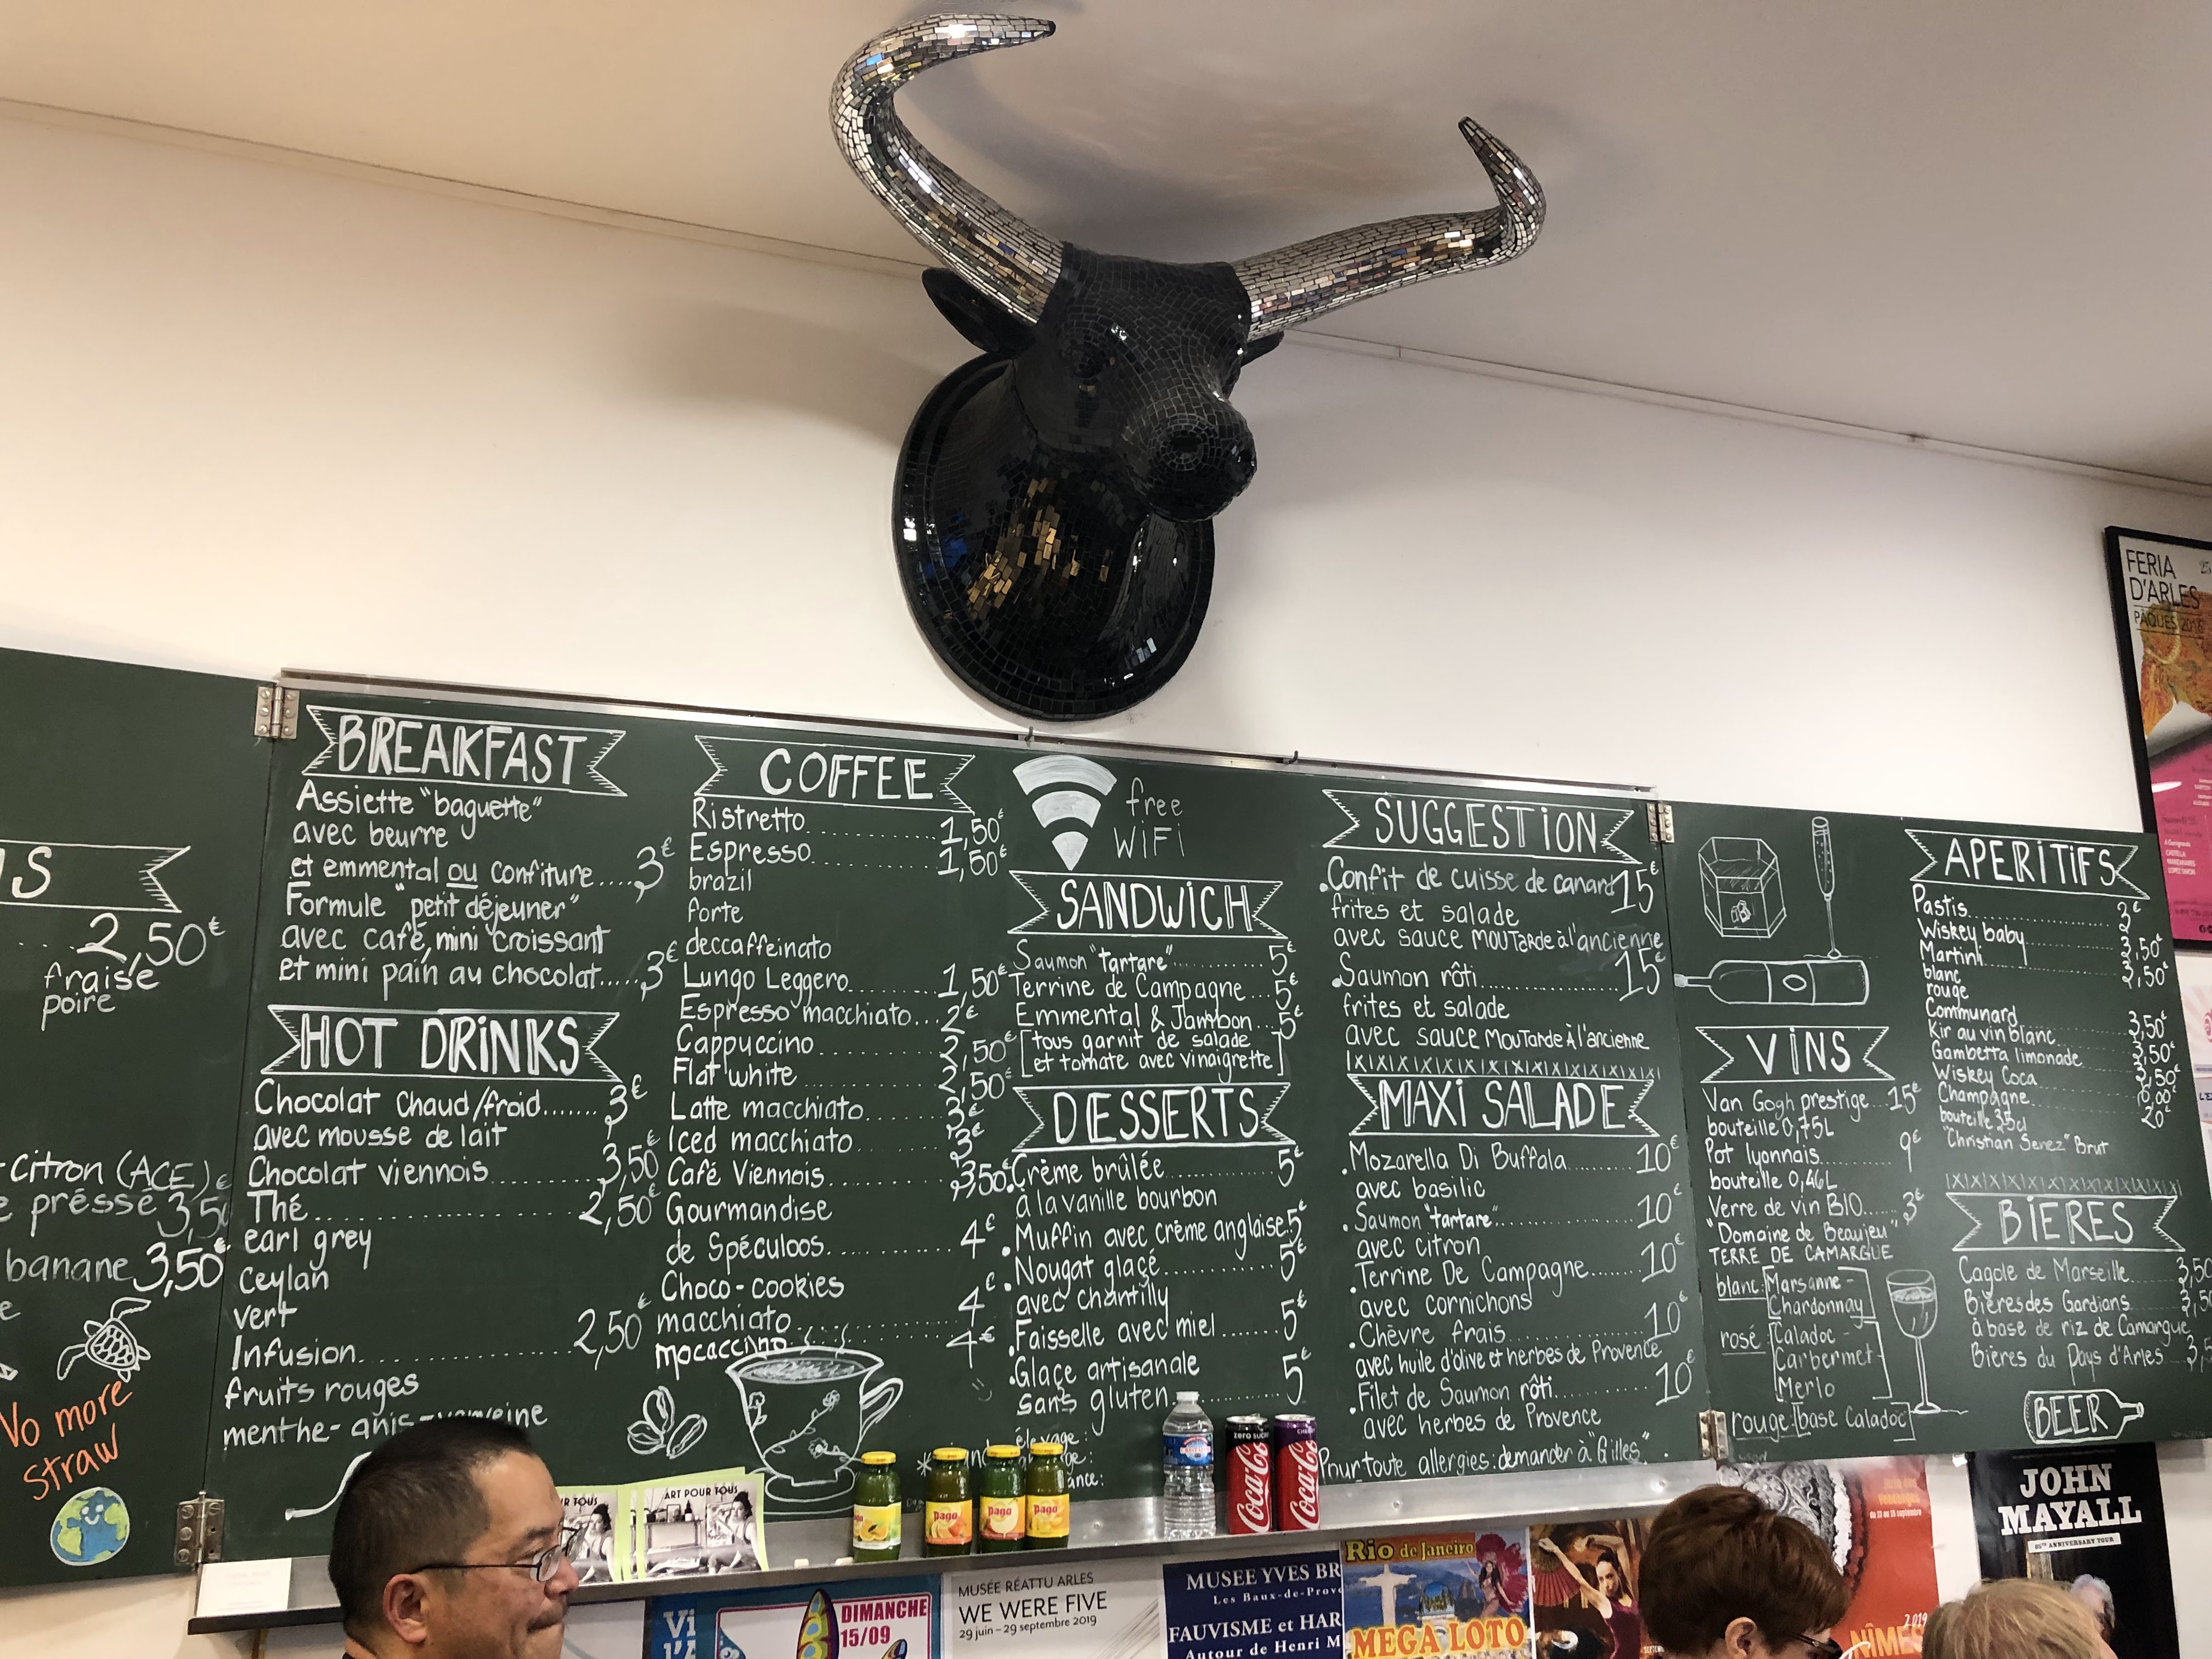 S
2,50€
fraise
poire
citron (ACE) €
préssé 3,50
banane 3,50€
No more
straw
BREAKFAST
Assiette "baguette"
avec beurre
et emmental ou confiture....3€
Formule "petit déjeuner"
avec café, mini croissant
et mini pain au chocolat.....3€
HOT DRINKS
Chocolat chaud/froid.......3€
avec mousse de lait
Chocolat viennois..........3,50€
Thé..........2,50€
earl grey
Ceylan
vert
Infusion..........2,50€
fruits rouges
menthe-anis-verveine
COFFEE
Ristretto..........1,50€
Espresso..........1,50€
brazil
forte
deccaffeinato
Lungo Leggero..........1,50€
Espresso macchiato...2€
Cappuccino..........2,50€
Flat white..........2,50€
Latte macchiato..........3€
Iced macchiato..........3€
Café Viennois..........3,50€
Gourmandise
de Spéculoos..........4€
Choco-cookies
macchiato..........4€
mocaccino..........4€
free
WiFi
SANDWICH
Saumon "tartare"..........5€
Terrine de Campagne...5€
Emmental & Jambon...5€
[tous garnit de salade
et tomate avec vinaigrette]
DESSERTS
.Crème brûlée..........5€
à la vanille bourbon
.Muffin avec crème anglaise.5€
.Nougat glacé..........5€
avec chantilly
.Faisselle avec miel......5€
.Glace artisanale
sans gluten..........5€
SUGGESTION
.Confit de cuisse de canard 15€
frites et salade
avec sauce MOUTarde à l'ancienne
.Saumon rôti..........15€
frites et salade
avec sauce MOUTarde à l'ancienne
MAXI SALADE
.Mozarella Di Buffala.......10€
avec basilic
.Saumon "tartare"..........10€
avec citron
.Terrine De Campagne.......10€
avec cornichons
.Chèvre frais..........10€
avec huile d'olive et herbes de Provence
.Filet de Saumon rôti..........10€
avec herbes de Provence
Pour toute allergies: demander à "Gilles".
VINS
Van Gogh prestige...15€
bouteille 0,75L
Pot lyonnais..........9€
bouteille 0,46L
Verre de vin BIO......3€
"Domaine de Beaujeu"
TERRE DE CAMARGUE
blanc: [Marsanne-
Chardonnay
rosé: [Caladoc-
Carbermet-
Merlo]
rouge: [base Caladoc]
APERITIFS
Pastis..........2€
Wiskey baby..........3,50€
Martini..........3,50€
blanc
rouge
Communard..........3,50€
Kir au vin blanc..........3,50€
Gambetta limonade
Wiskey Coca
Champagne..........20€
bouteille 35cl
"Christian Senez" Brut
BIERES
Cagole de Marseille....3,50
Bières des Gardians....3,50
à base de riz de Camargue
Bières du Pays d'Arles....3,5
BEER
FERIA
D'ARLES
PÂQUES
ART POUR TOUS
Pago
Pago
Pago
Pago
zero sucres
Coca-Cola
Coca-Cola
DIMANCHE
15/09
MUSÉE RÉATTU ARLES
WE WERE FIVE
29 juin – 29 septembre 2019
MUSEE YVES BR
Les Baux-de-Prove
FAUVISME et HAR
Autour de Henri M
Rio de Janeiro
MEGA LOTO
2019
NÎMES
JOHN
MAYALL
85TH ANNIVERSARY TOUR